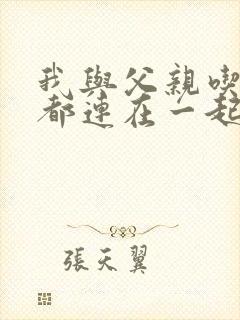 我與父親喫
都連在一起
張天翼